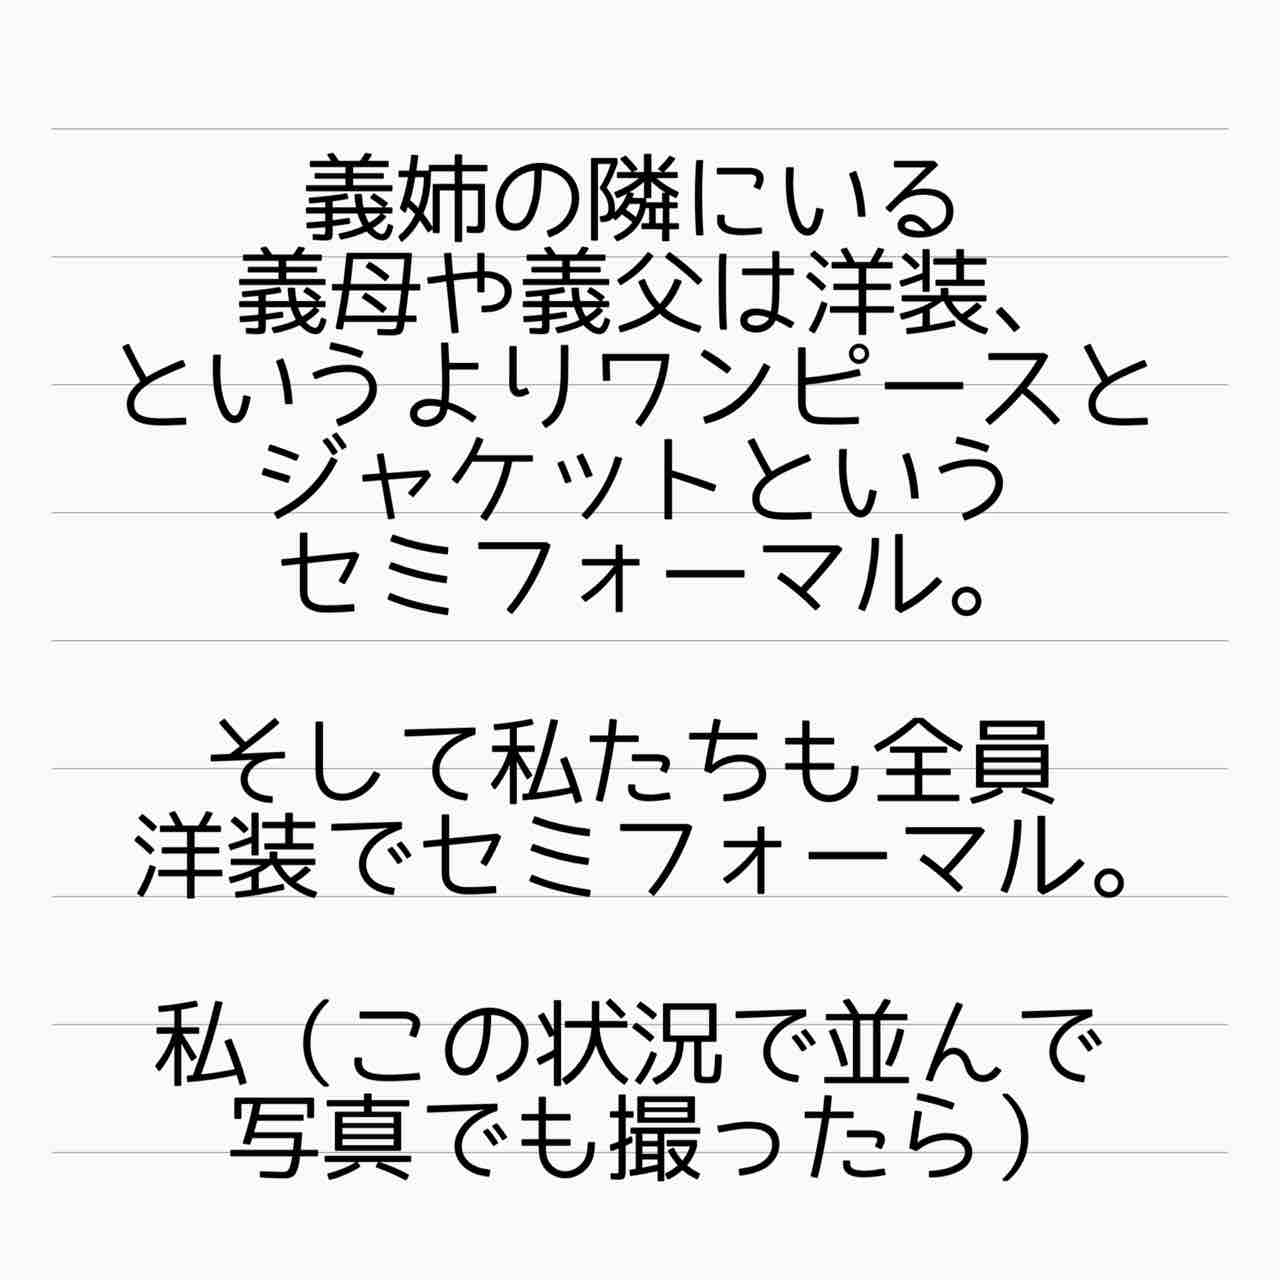 義姉の隣にいる
義母や義父は洋装、
というよりワンピースと
ジャケットという
セミフォーマル。
そして私たちも全員
洋装でセミフォーマル。
私（この状況で並んで
写真でも撮ったら）